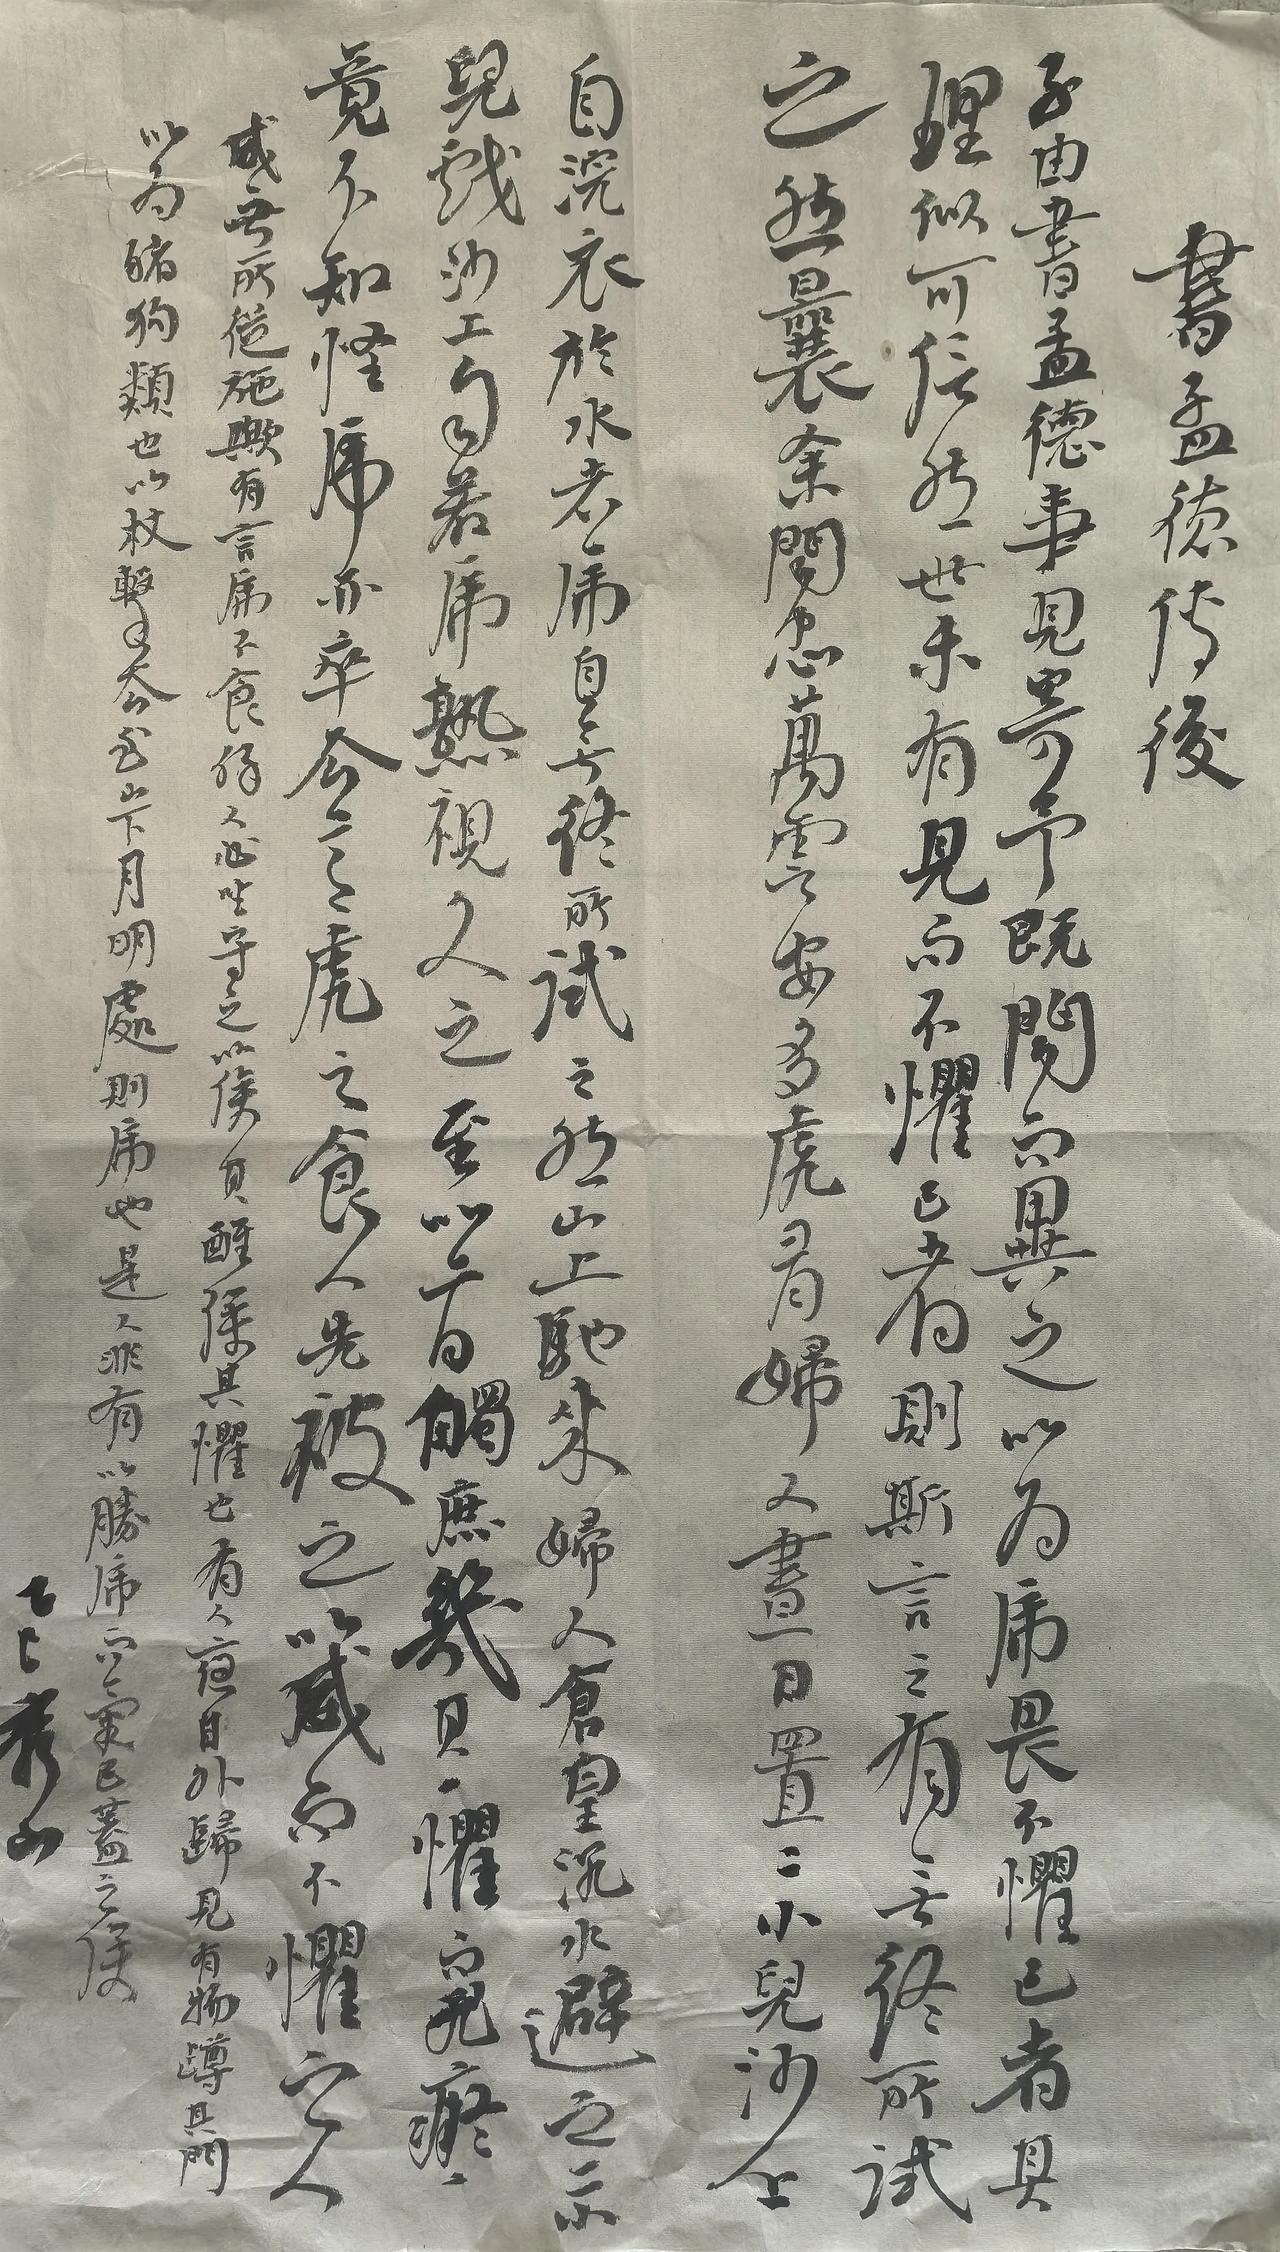 書孟德传後
子由書孟德事見寄予既聞而異之以为虎畏不懼己者其
理似可信然世未有見而不懼己者則斯言之有无终所試
之然曩余聞忠萬雲安多虎有婦人晝日置二小兒沙上
自浣衣於水者虎自山上馳来婦人倉皇沉水避之二小
兒戲沙上自若虎熟視久之至以首觝觸庶幾其懼而兒癡
竟不知怪虎亦卒去意虎之食人先被之以威而不懼之人
威無所從施歟有言虎不食醉人必坐守之以俟其醒俟其懼也有人夜自外歸見有物蹲其門
以为猪狗類也以杖擊之即逸去至山下月明處則虎也是人非有以勝虎而氣已蓋之使
乙巳 秀山